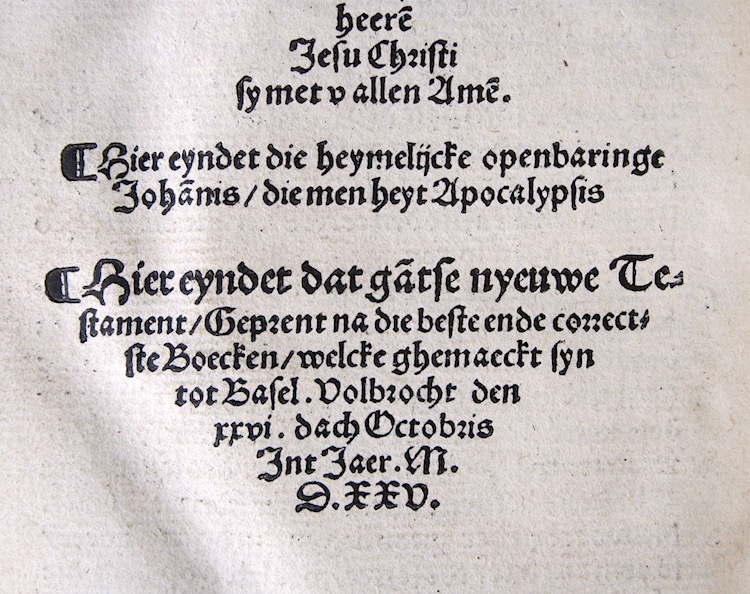 heerẽ
Jesu Christi
sy met v allen Amẽ.
¶ Hier eyndet die heymelijcke openbaringe
Johãnis / die men heyt Apocalypsis
¶ Hier eyndet dat gãtse nyeuwe Te⸗
stament / Geprent na die beste ende correct⸗
ste Boecken / welcke ghemaeckt syn
tot Basel. Volbrocht den
xxvi. dach Octobris
Int Jaer. M.
D.XXV.